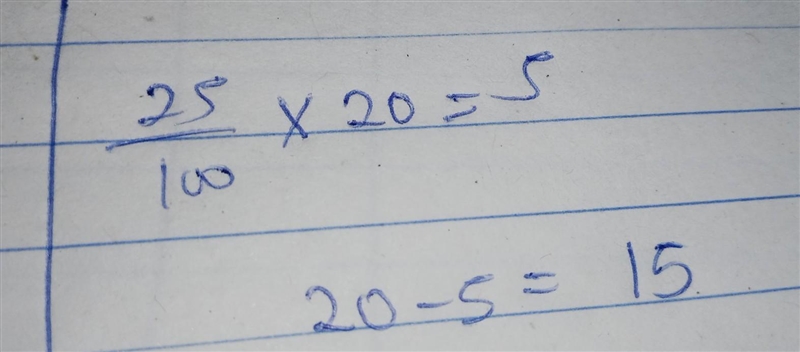 25/100 × 20 = 5
20 - 5 = 15